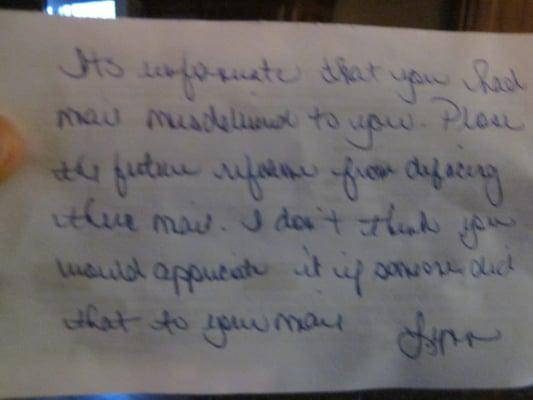 Its unfortunate that you had
mail misdelivered to you. Please
the future refraine from defacing
there mail. I don't think you
would appreciate it if someone did
that to your mail